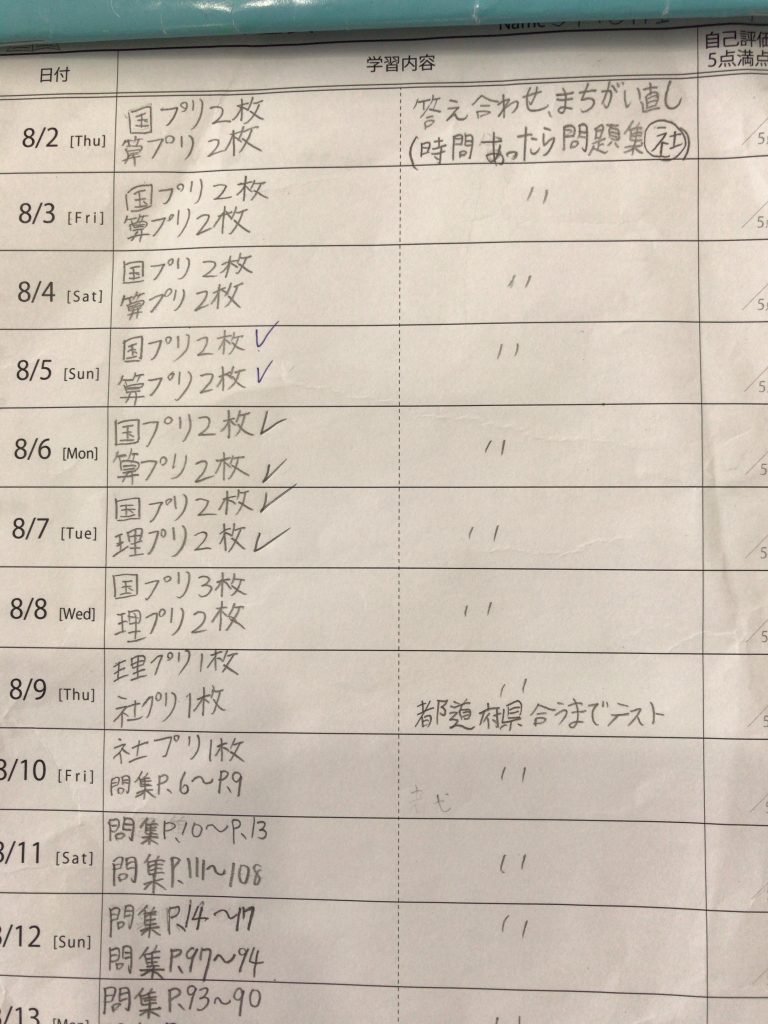 Name
日付 学習内容 自己評価
5点満点
8/2 [Thu] 国プリ2枚 答え合わせ、まちがい直し
算プリ2枚 (時間あったら問題集社)
8/3 [Fri] 国プリ2枚 〃
算プリ2枚
8/4 [Sat] 国プリ2枚 〃
算プリ2枚
8/5 [Sun] 国プリ2枚✓ 〃
算プリ2枚✓
8/6 [Mon] 国プリ2枚✓ 〃
算プリ2枚✓
8/7 [Tue] 国プリ2枚✓ 〃
理プリ2枚✓
8/8 [Wed] 国プリ3枚 〃
理プリ2枚
8/9 [Thu] 理プリ1枚 〃
社プリ1枚 都道府県合うまでテスト
8/10 [Fri] 社プリ1枚 〃
問集P.6〜P.9
8/11 [Sat] 問集P.10〜P.13 〃
問集P.111〜108
8/12 [Sun] 問集P.14〜17 〃
問集P.97〜94
8/13 [Mon] 問集P.93〜90 〃